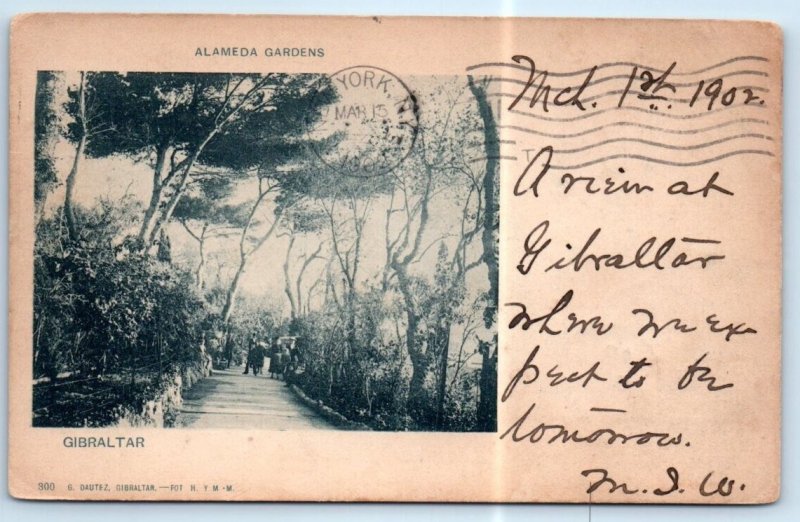 ALAMEDA GARDENS
YORK, N.Y.
MAR 15
Mch. 1st. 1902.
A view at
Gibraltar
where we ex-
pect to be
tomorrow.
M. I. W.
GIBRALTAR
300 G. DAUTEZ, GIBRALTAR. — FOT H. Y M. - M.